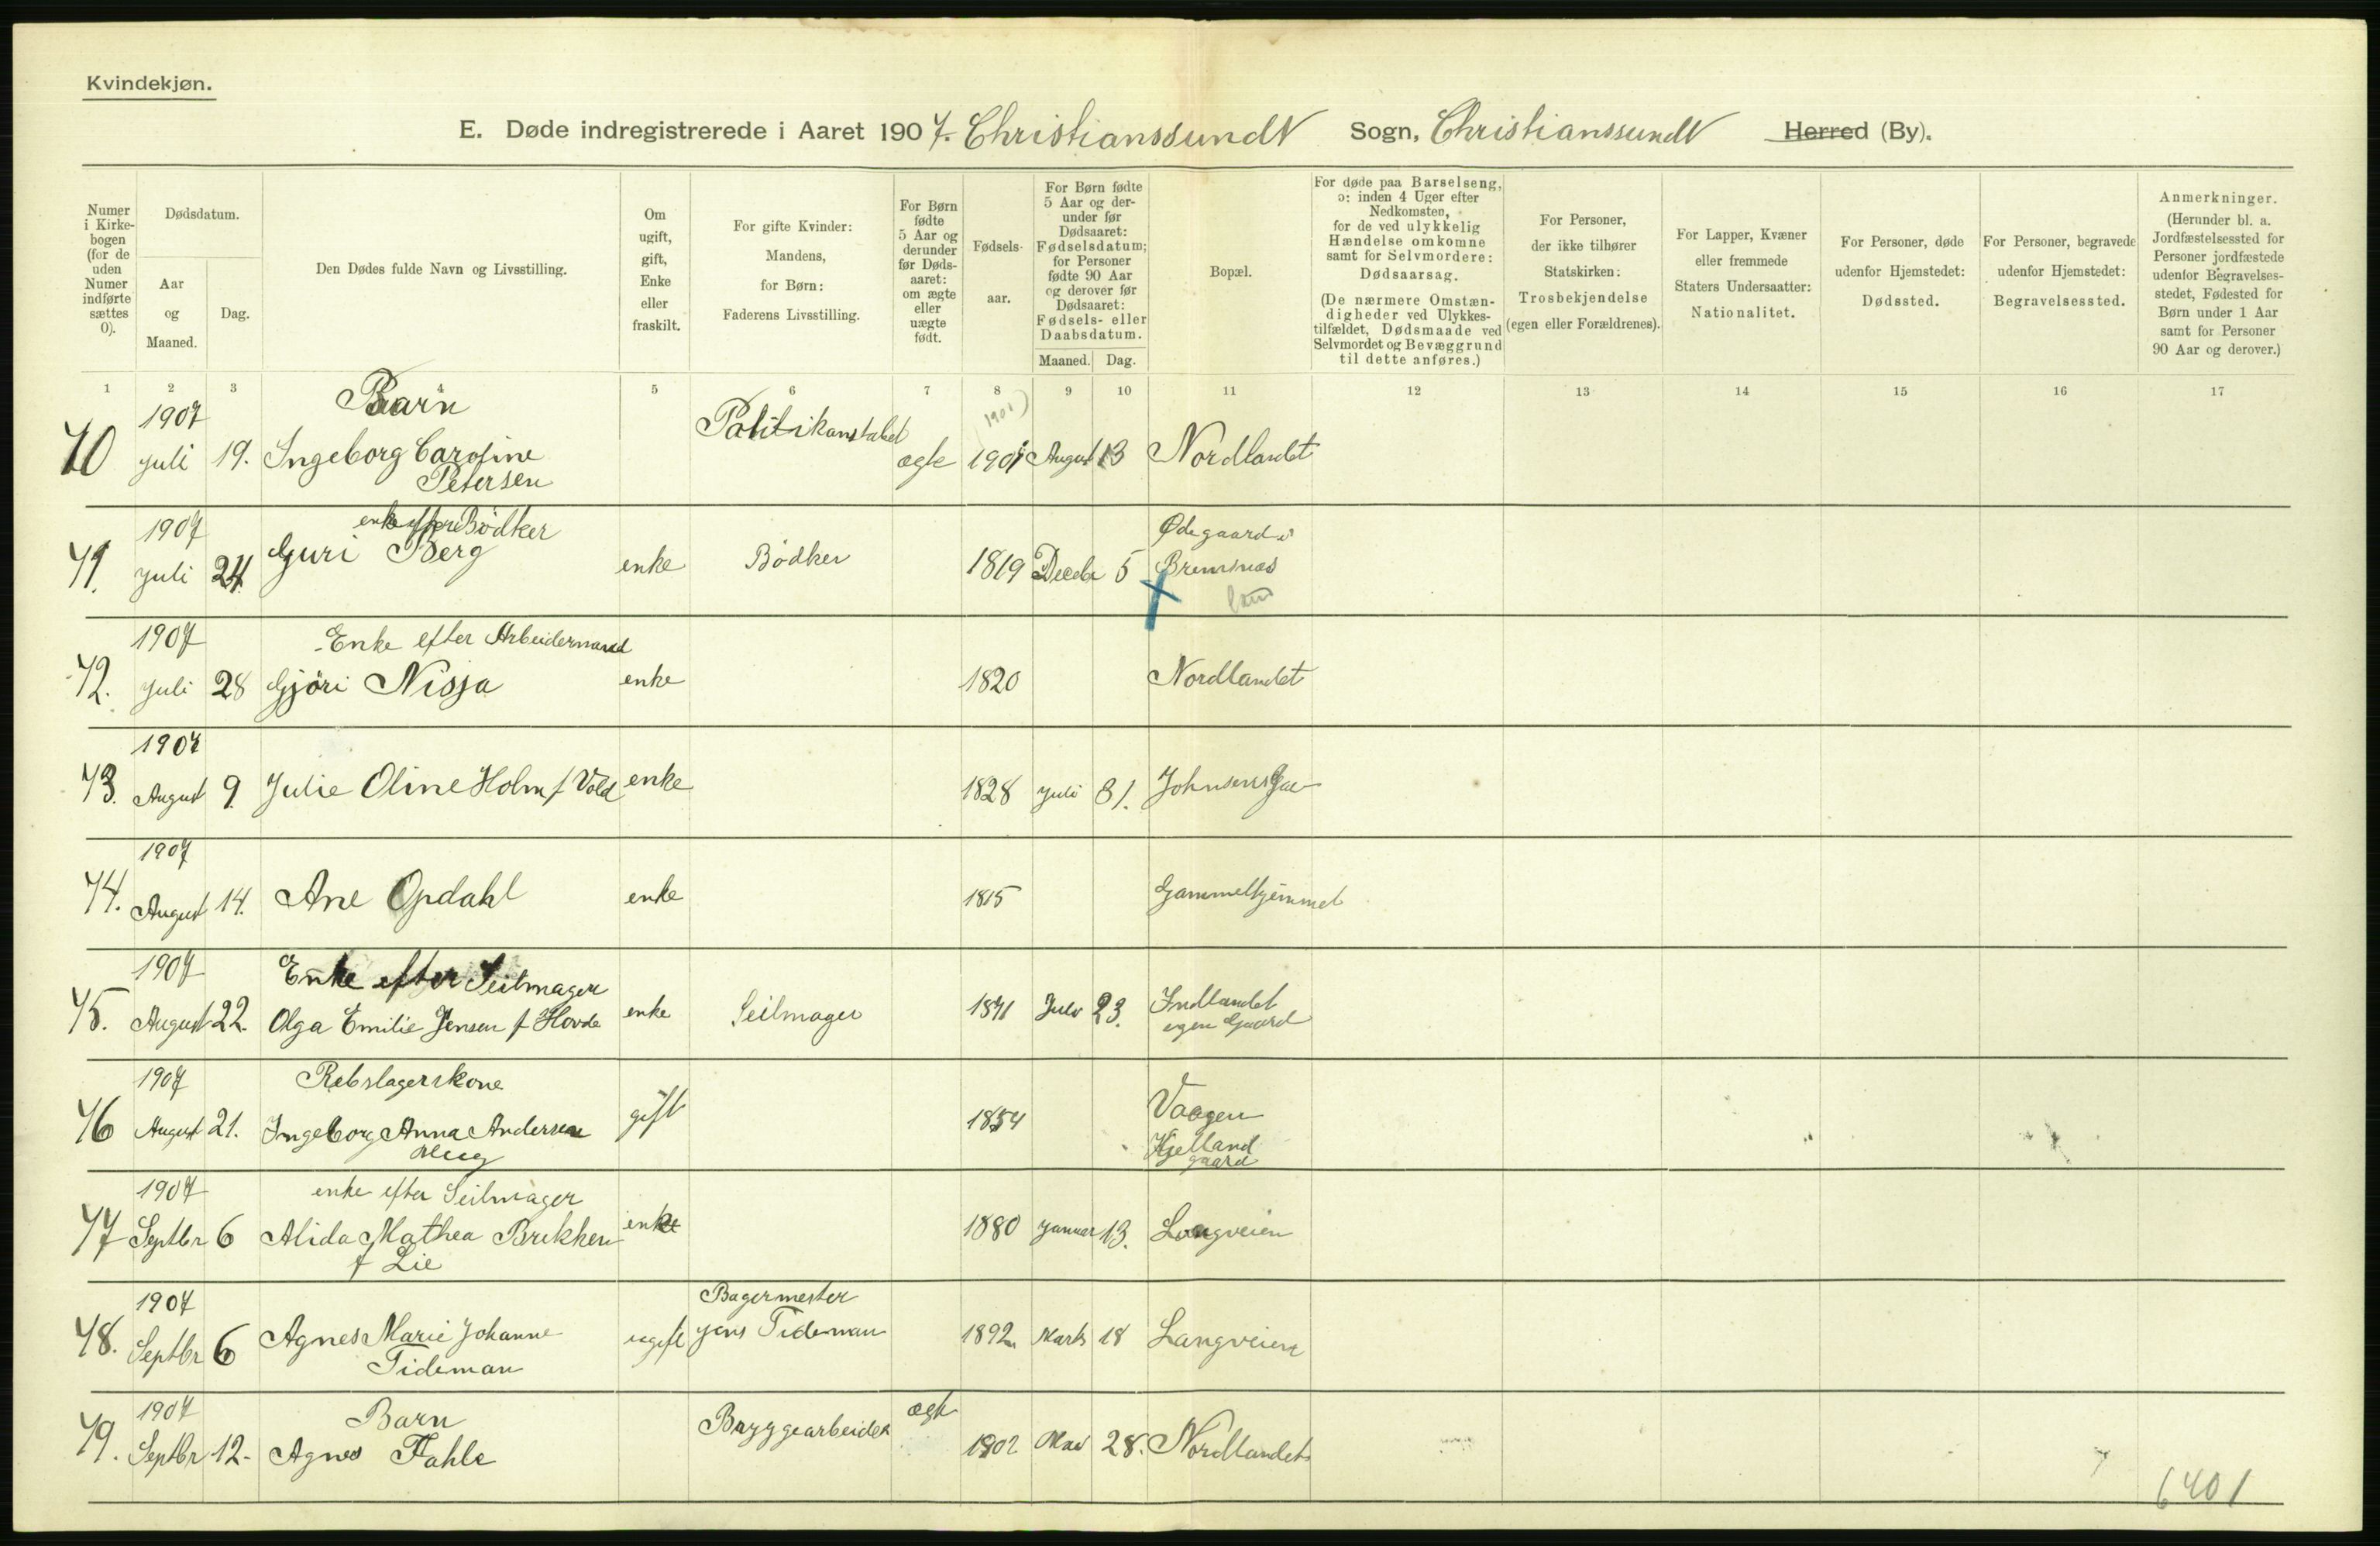 Kvindekjøn.
E. Døde indregistrerede i Aaret 1907. Christianssund Sogn, Christianssund Herred (By).
Numer i Kirke-bogen (for de uden Numer indførte sættes 0).
Dødsdatum.
Aar og Maaned.
Dag.
Den Dødes fulde Navn og Livsstilling.
Om ugift, gift, Enke eller fraskilt.
For gifte Kvinder: Mandens, for Børn: Faderens Livsstilling.
For Børn fødte 5 Aar og derunder før Døds-aaret: om ægte eller uægte født.
Fødsels-aar.
For Børn fødte 5 Aar og der-under før Dødsaaret: Fødselsdatum; for Personer fødte 90 Aar og derover før Dødsaaret: Fødsels- eller Daabsdatum.
Maaned. Dag.
Bopæl.
For døde paa Barselseng, ɔ: inden 4 Uger efter Nedkomsten, for de ved ulykkelig Hændelse omkomne samt for Selvmordere: Dødsaarsag.
(De nærmere Omstæn-digheder ved Ulykkes-tilfældet, Dødsmaade ved Selvmordet og Bevæggrund til dette anføres.)
For Personer, der ikke tilhører Statskirken: Trosbekjendelse (egen eller Forældrenes).
For Lapper, Kvæner eller fremmede Staters Undersaatter: Nationalitet.
For Personer, døde udenfor Hjemstedet: Dødssted.
For Personer, begravede udenfor Hjemstedet: Begravelsessted.
Anmerkninger.
(Herunder bl. a. Jordfæstelsessted for Personer jordfæstede udenfor Begravelses-stedet, Fødested for Børn under 1 Aar samt for Personer 90 Aar og derover.)
1 2 3 4 5 6 7 8 9 10 11 12 13 14 15 16 17
1907 Barn Politikonstabel
70 Juli 19. Ingeborg Caroline ægte 1901 August 13 Nordlandet
Petersen
1907 enke efter Bödker Ødegaard i
71. Juli 24 Guri Berg enke Bödker 1819 Decebr 5 Bremsnæs
1907 Enke efter Arbeidermand
72. Juli 28 Gjöri Nisja enke 1820 Nordlandet
1907
73. August 9. Julie Oline Holm f Vold enke 1828 Juli 31.
1907
74. August 14. Ane Opdahl enke 1815 Gammelhjemmet
1907 Enke efter Seilmager
75. August 22. Olga Emilie Jensen f Hovde enke Seilmager 1841 Juli 23. Indlandet
egen Gaard
1907 Rebslagerskone
76 August 21. Ingeborg Anna Andersen gift 1854 Vaagen
Kjelland
gaard
1907 enke efter Seilmager
77 Septbr 6 Alida Mathea Brekken enke 1880 Januar 13. Langveien
f Lie
1907 Bagermester
78. Septbr 6 Agnes Marie Johanne ugift Jens Tideman 1892 Marts 18 Langveien
Tideman
1907 Barn Bryggearbeider ægte
79. Septbr 12. Agnes Fahle 1902 Mai 28. Nordlandet
6401